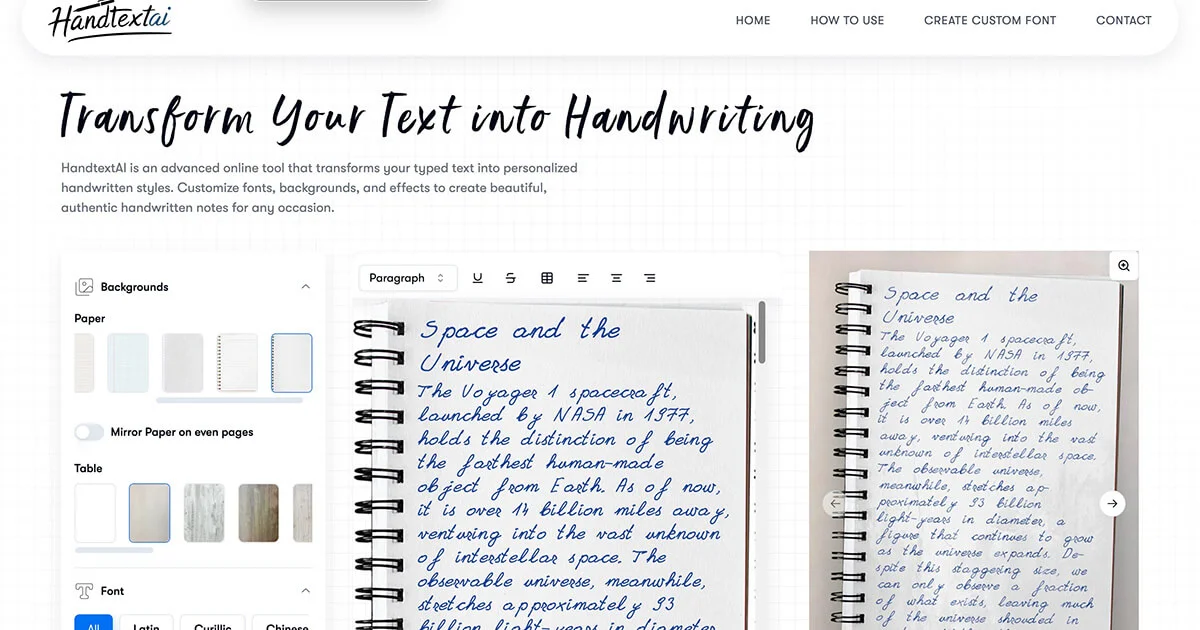 Handtextai
HOME
HOW TO USE
CREATE CUSTOM FONT
CONTACT
Transform Your Text into Handwriting
HandtextAI is an advanced online tool that transforms your typed text into personalized
handwritten styles. Customize fonts, backgrounds, and effects to create beautiful,
authentic handwritten notes for any occasion.
Backgrounds
Paper
Mirror Paper on even pages
Table
Font
All
Latin
Cyrillic
Chinese
Paragraph
Space and the
Universe
The Voyager 1 spacecraft,
launched by NASA in 1977,
holds the distinction of being
the farthest human-made
object from Earth. As of now,
it is over 14 billion miles away,
venturing into the vast unknown
of interstellar space. The
observable universe, meanwhile,
stretches approximately 93
billion light-years in diameter,
Space and the
Universe
The Voyager 1 spacecraft,
launched by NASA in 1977,
holds the distinction of being
the farthest human-made ob-
ject from Earth. As of now,
it is over 14 billion miles
away, venturing into the vast
unknown of interstellar space.
The observable universe,
meanwhile, stretches ap-
proximately 93 billion
light-years in diameter, a
figure that continues to grow
as the universe expands. De-
spite this staggering size, we
can only observe a fraction
of what exists, leaving much
of the universe shrouded in